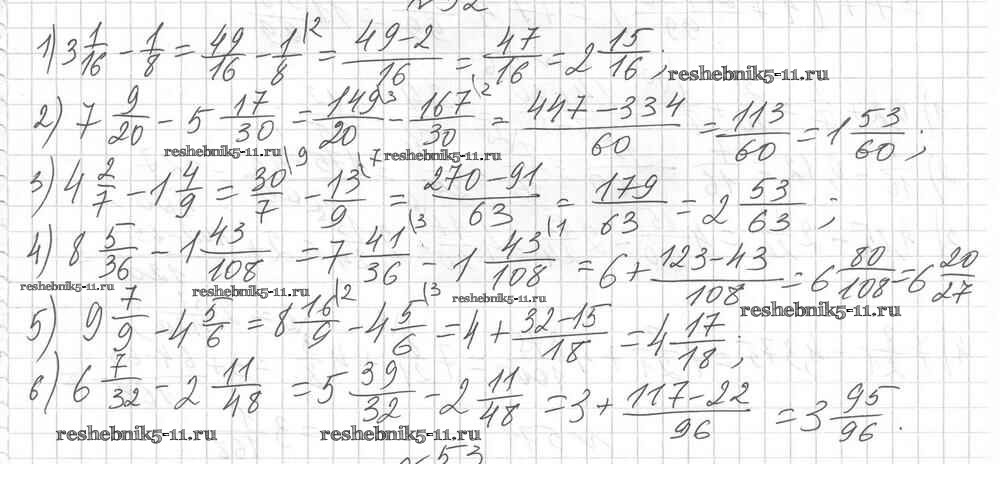 №52
1) 3 1/16 - 1/8 = 49/16 - 1/8 \2 = 49-2/16 = 47/16 = 2 15/16;
reshebnik5-11.ru
2) 7 9/20 - 5 17/30 = 149/20 \3 - 167/30 \2 = 447-334/60 = 113/60 = 1 53/60;
reshebnik5-11.ru reshebnik5-11.ru
3) 4 2/7 - 1 4/9 = 30/7 \9 - 13/9 \7 = 270-91/63 = 179/63 = 2 53/63;
4) 8 5/36 - 1 43/108 = 7 41/36 \3 - 1 43/108 \1 = 6 + 123-43/108 = 6 80/108 = 6 20/27
reshebnik5-11.ru reshebnik5-11.ru reshebnik5-11.ru reshebnik5-11.ru
5) 9 7/9 - 4 5/6 = 8 16/9 \2 - 4 5/6 \3 = 4 + 32-15/18 = 4 17/18;
6) 6 7/32 - 2 11/48 = 5 39/32 - 2 11/48 = 3 + 117-22/96 = 3 95/96.
reshebnik5-11.ru reshebnik5-11.ru
№53